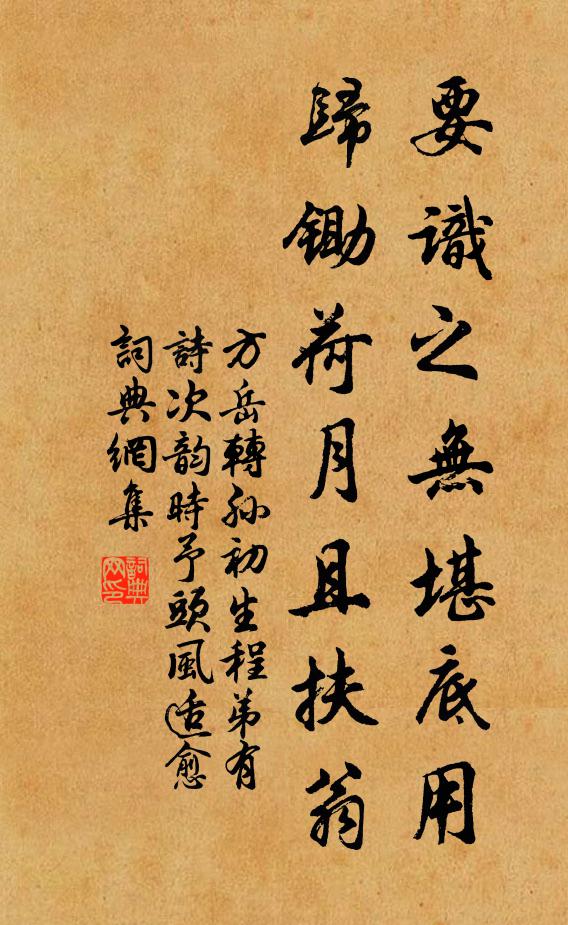 要識之無堪底用
歸鋤荷月且扶翁
方岳轉孫初生程弟有
詩次韵時予頭風适愈
詞典網集
詞典网印